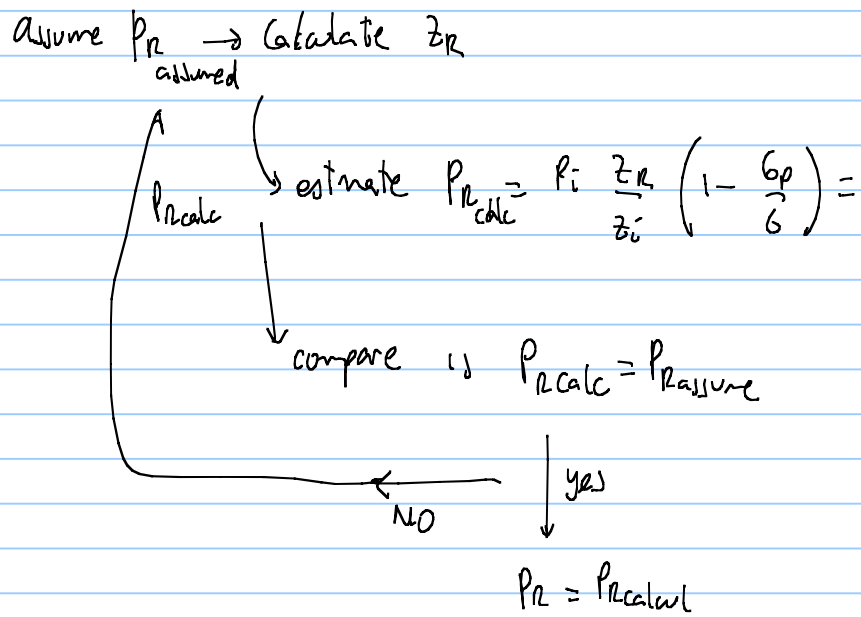 assume PR assumed → Calculate ZR
estimate PR calc = Pi ZR/Zi (1 - Gp/G) =
PR calc
compare is PR calc = PR assume
yes
NO
PR = PR calcul